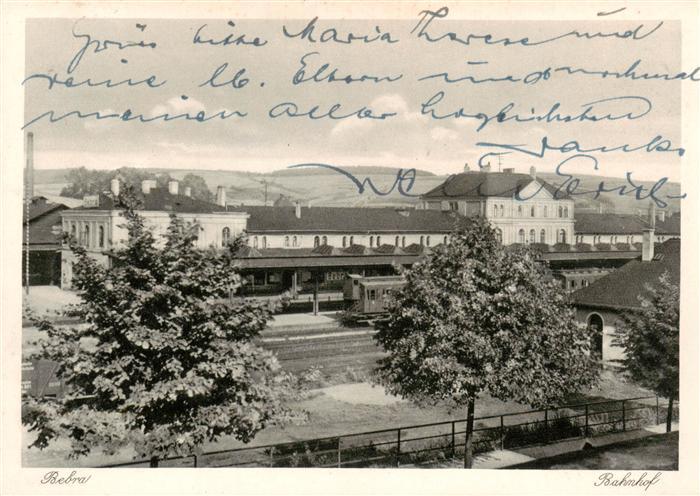 Grüss bitte Maria Therese und
deine lb. Eltern und nochmal
meinen aller herzlichsten
Dank
Erich
Bebra
Bahnhof